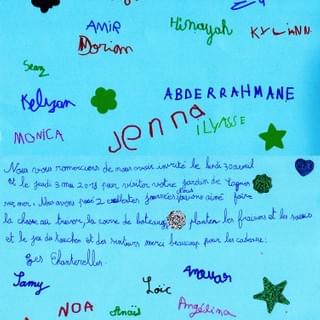 AMIR Hinayah KYLiANN
Dorian
Sean
Kelyan ABDERRAHMANE
MONICA Jenna ILYASSE
Nous vous remercions de nous avoir invité le lundi 30 avril
et le jeudi 3 mai 2018 par visiter votre jardin de Cagnes
sur mer. Nous avons passé 2 journées nous avons aimé faire
la chasse au trésor, la course de bateaux, planter les fraisiers et les
et le jeu du toucher et des senteurs merci beaucoup pour les cadeaux.
Les Chanterelles.
Samy Loïc Anouar
NOA Anaïs Angélina